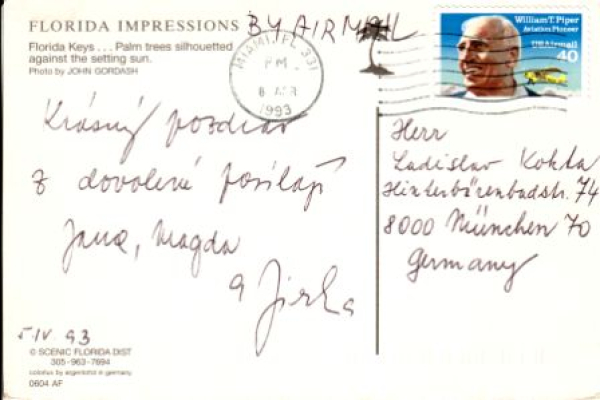 FLORIDA IMPRESSIONS
Florida Keys . . . Palm trees silhouetted
against the setting sun.
Photo by JOHN GORDASH
BY AIR MAIL
MIAMI, FL 331
PM
8 APR
1993
William T. Piper
Aviation Pioneer
USAirmail
40
Krásný pozdrav
z dovolené posílají
Jana, Magda
a Jirka
5.IV. 93
Herr
Ladislav Kokta
Hinterbärenbadstr. 74
8000 München 70
Germany
© SCENIC FLORIDA DIST
305-963-7694
colortus by argentorfot in germany
0604 AF